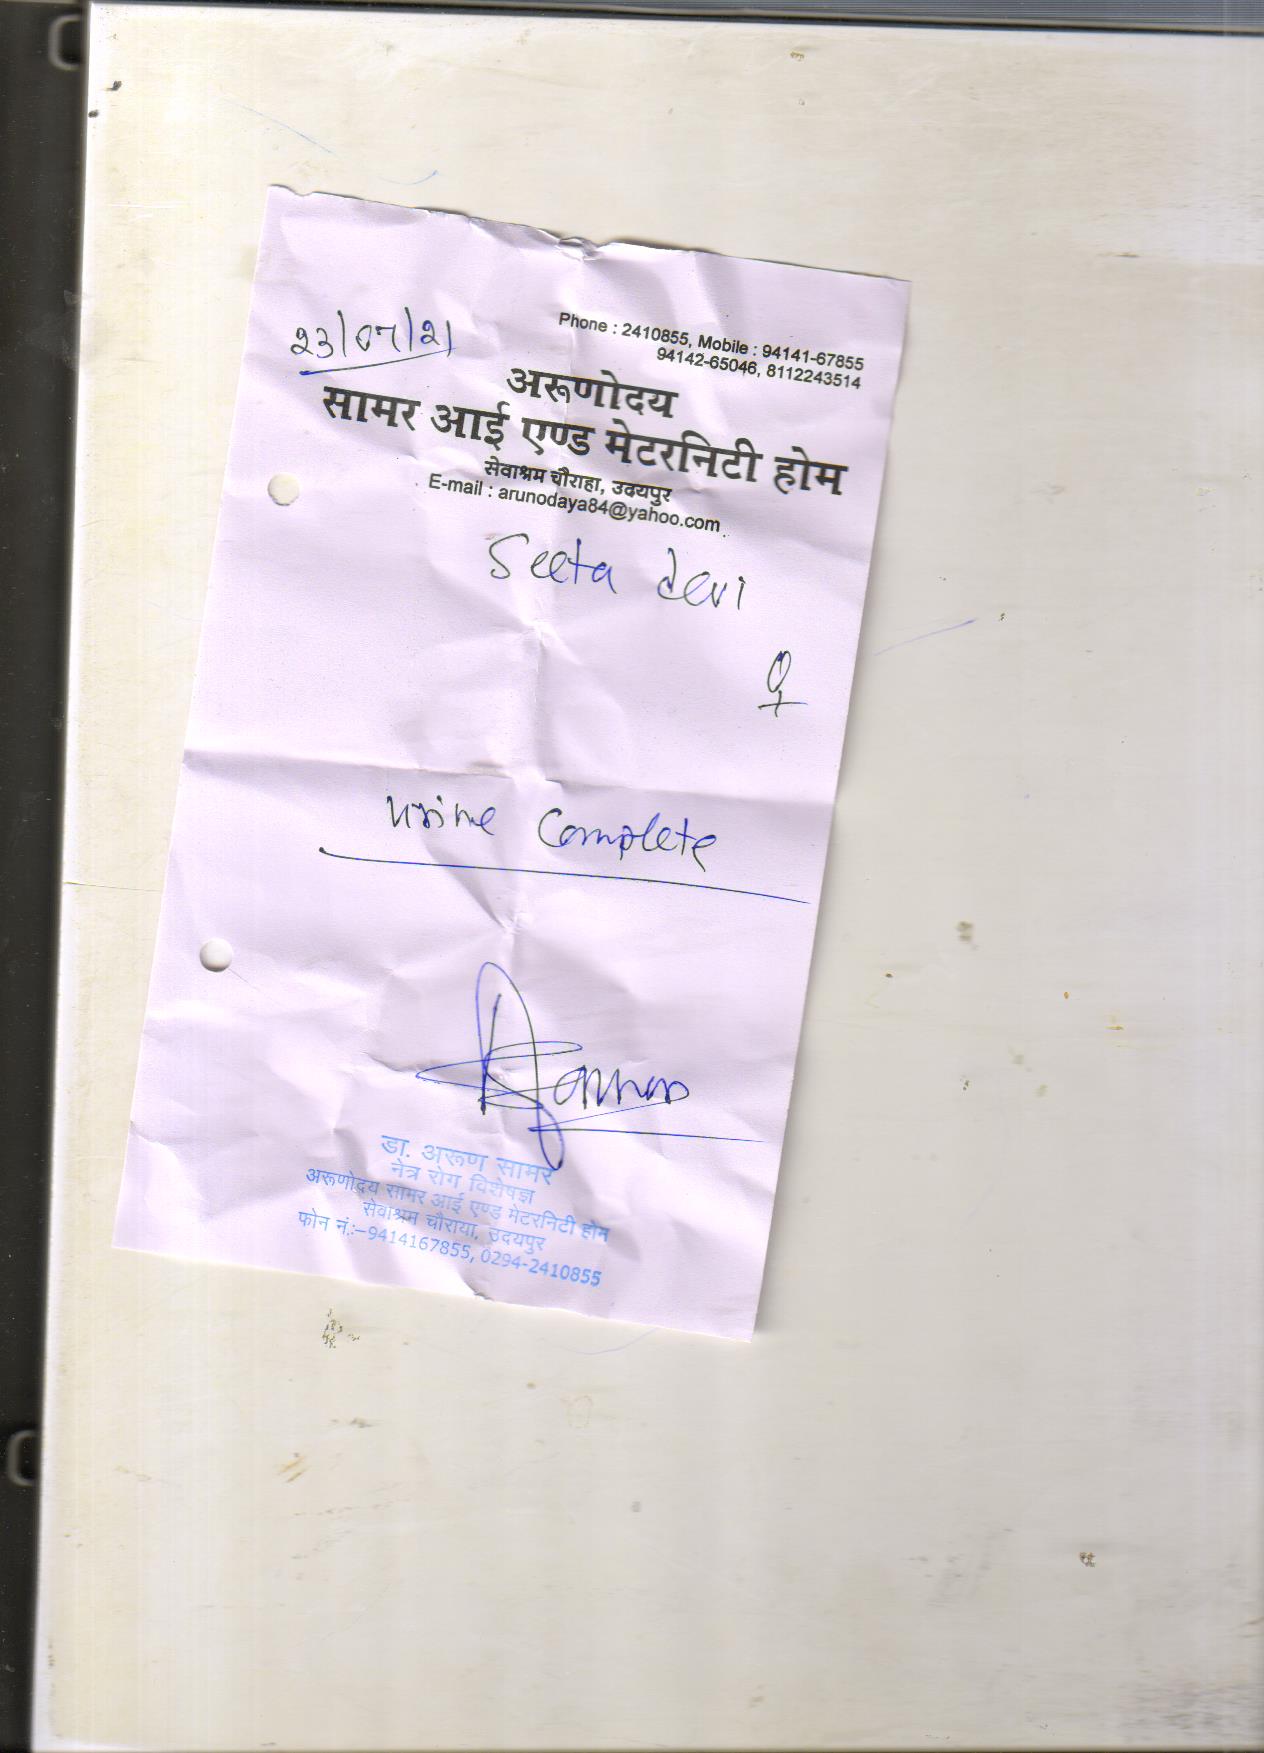 23/07/21
Phone : 2410855, Mobile : 94141-67855
94142-65046, 8112243514
अरूणोदय
सामर आई एण्ड मेटरनिटी होम
सेवाश्रम चौराहा, उदयपुर
E-mail : arunodaya84@yahoo.com
Seeta devi
♀
Urine Complete
डा. अरूण सामर
नेत्र रोग विशेषज्ञ
अरूणोदय सामर आई एण्ड मेटरनिटी होम
सेवाश्रम चौराया, उदयपुर
फोन नं.:-9414167855, 0294-2410855